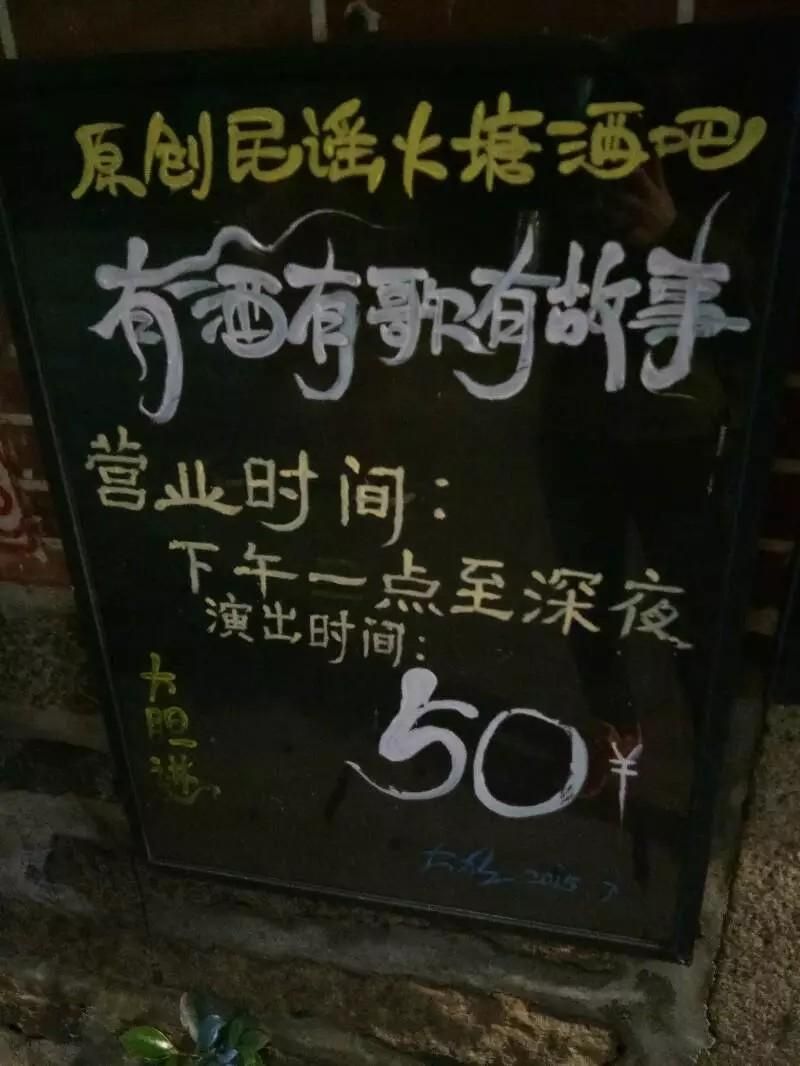 原创民谣火塘酒吧
有酒有歌有故事
营业时间：
下午一点至深夜
演出时间：
50¥
大胆进
2015.7